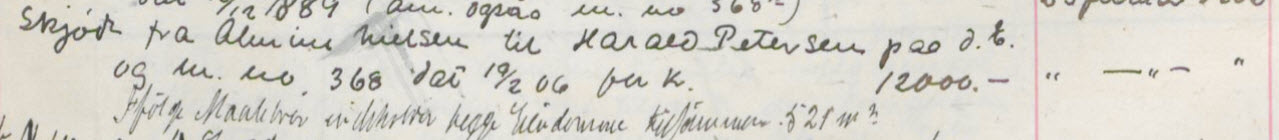 dat 9/12 1889 (em. ogsaa m. no 368
Skjøde fra Almine Nielsen til Harald Petersen paa d. E.
og m. no. 368 dat 19/2 06 for K. 12000.- „ —„— "
Ifölge Maalebrev indeholder begge Eiendomme tilsammen 521 m²